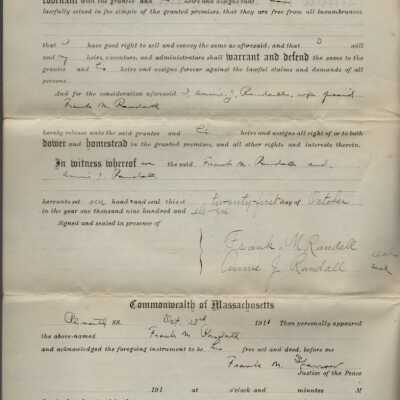 covenant with the grantee and heirs and assigns that
lawfully seized in fee simple of the granted premises, that they are free from all incumbrances
that I have good right to sell and convey the same as aforesaid; and that I will
and my heirs, executors, and administrators shall warrant and defend the same to the
grantee and his heirs and assigns forever against the lawful claims and demands of all
persons
And for the consideration aforesaid I, Annie J. Randall, wife of said
Frank M. Randall
hereby release unto the said grantee and his heirs and assigns all right of or to both
dower and homestead in the granted premises, and all other rights and interests therein.
In witness whereof we the said Frank M. Randall and
Annie J. Randall
hereunto set our hand and seal this twenty-first day of October
in the year one thousand nine hundred and
Signed and sealed in presence of
Frank M. Randall
Annie J. Randall
Commonwealth of Massachusetts
Plymouth ss. Oct. 191 Then personally appeared
the above-named Frank M. Randall
and acknowledged the foregoing instrument to be his free act and deed, before me
Frank M.
Justice of the Peace
191 at o'clock and minutes M